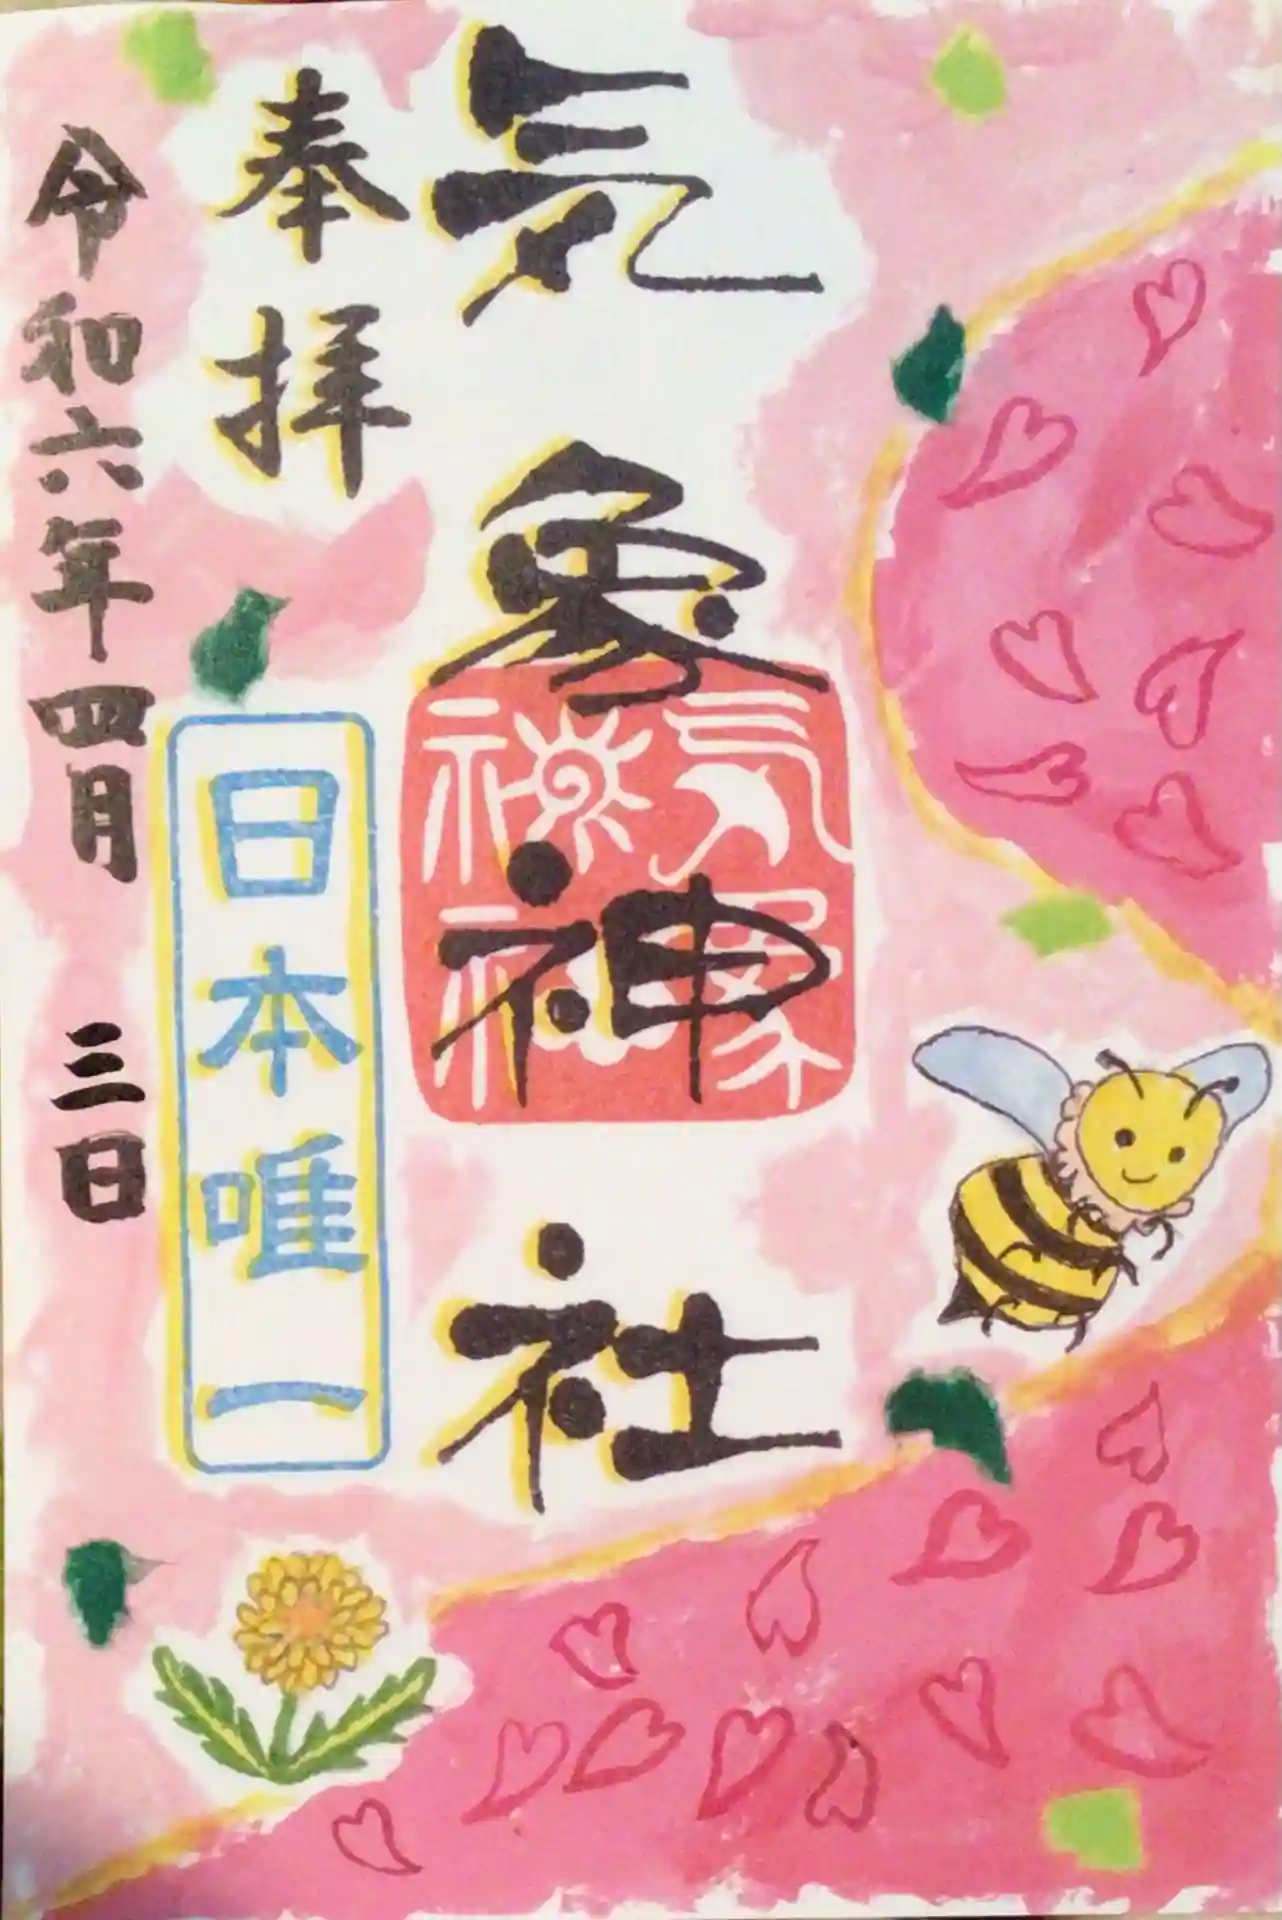 気象神社
気象神社
奉拝
日本唯一
令和六年四月三日